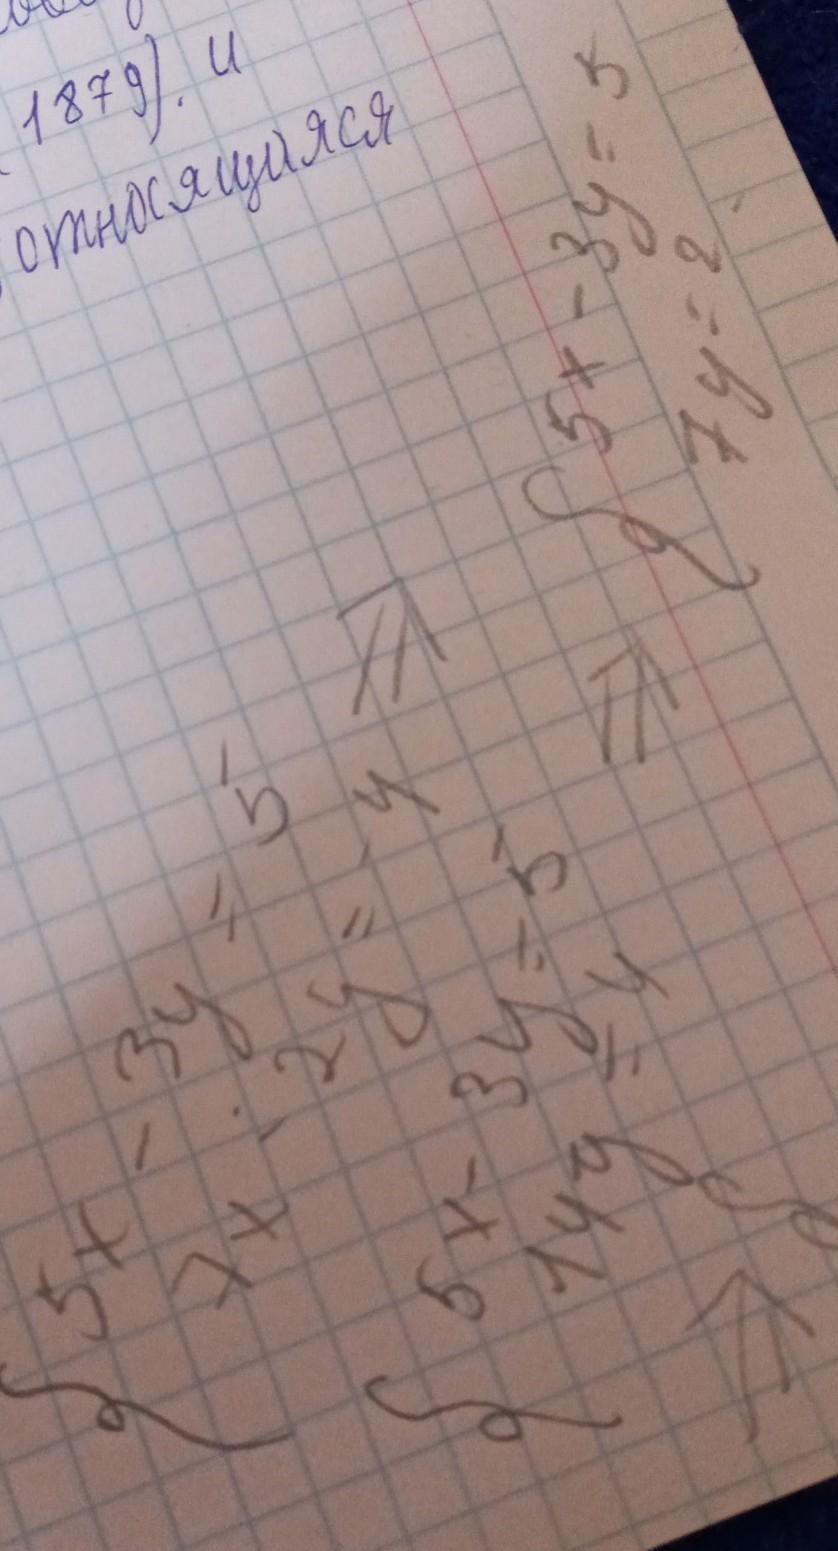 1879). и
относящаяся
{ 5x - 3y = 5
7x - 2y = -4 =>
{ 5x - 3y = 5
14y = 4 =>
{ 5x - 3y = 5
7y = 2
=> {